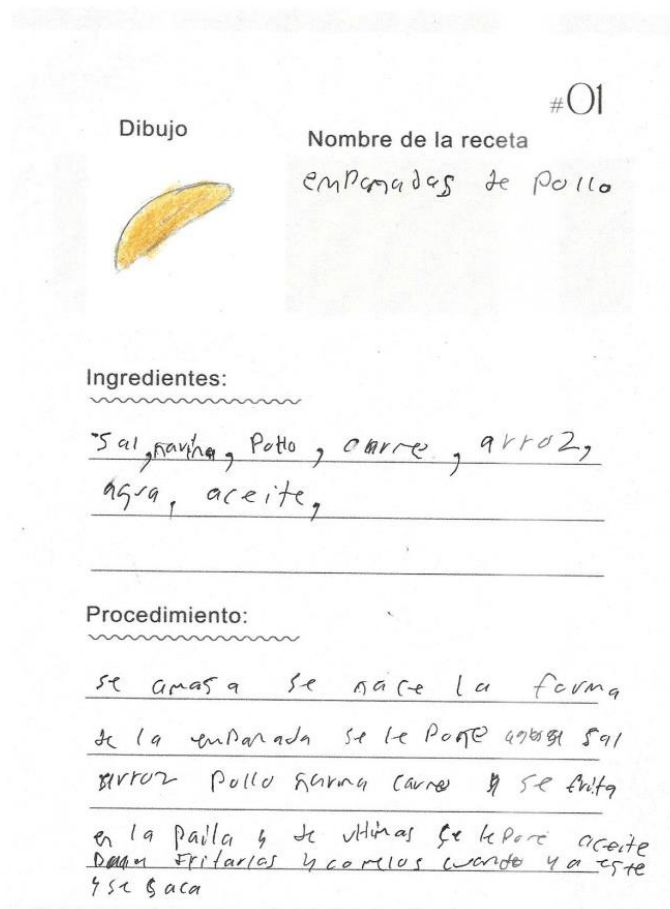 #01
Dibujo
Nombre de la receta
empanadas de pollo
Ingredientes:
Sal, harina, Pollo, carne, arroz,
agua, aceite,
Procedimiento:
se amasa se hace la forma
de la empanada se le Pone sal
arroz Pollo harina carne se frita
en la paila y de ultimas se le pone aceite
Fritarlas y comelos cuando ya este
y se saca